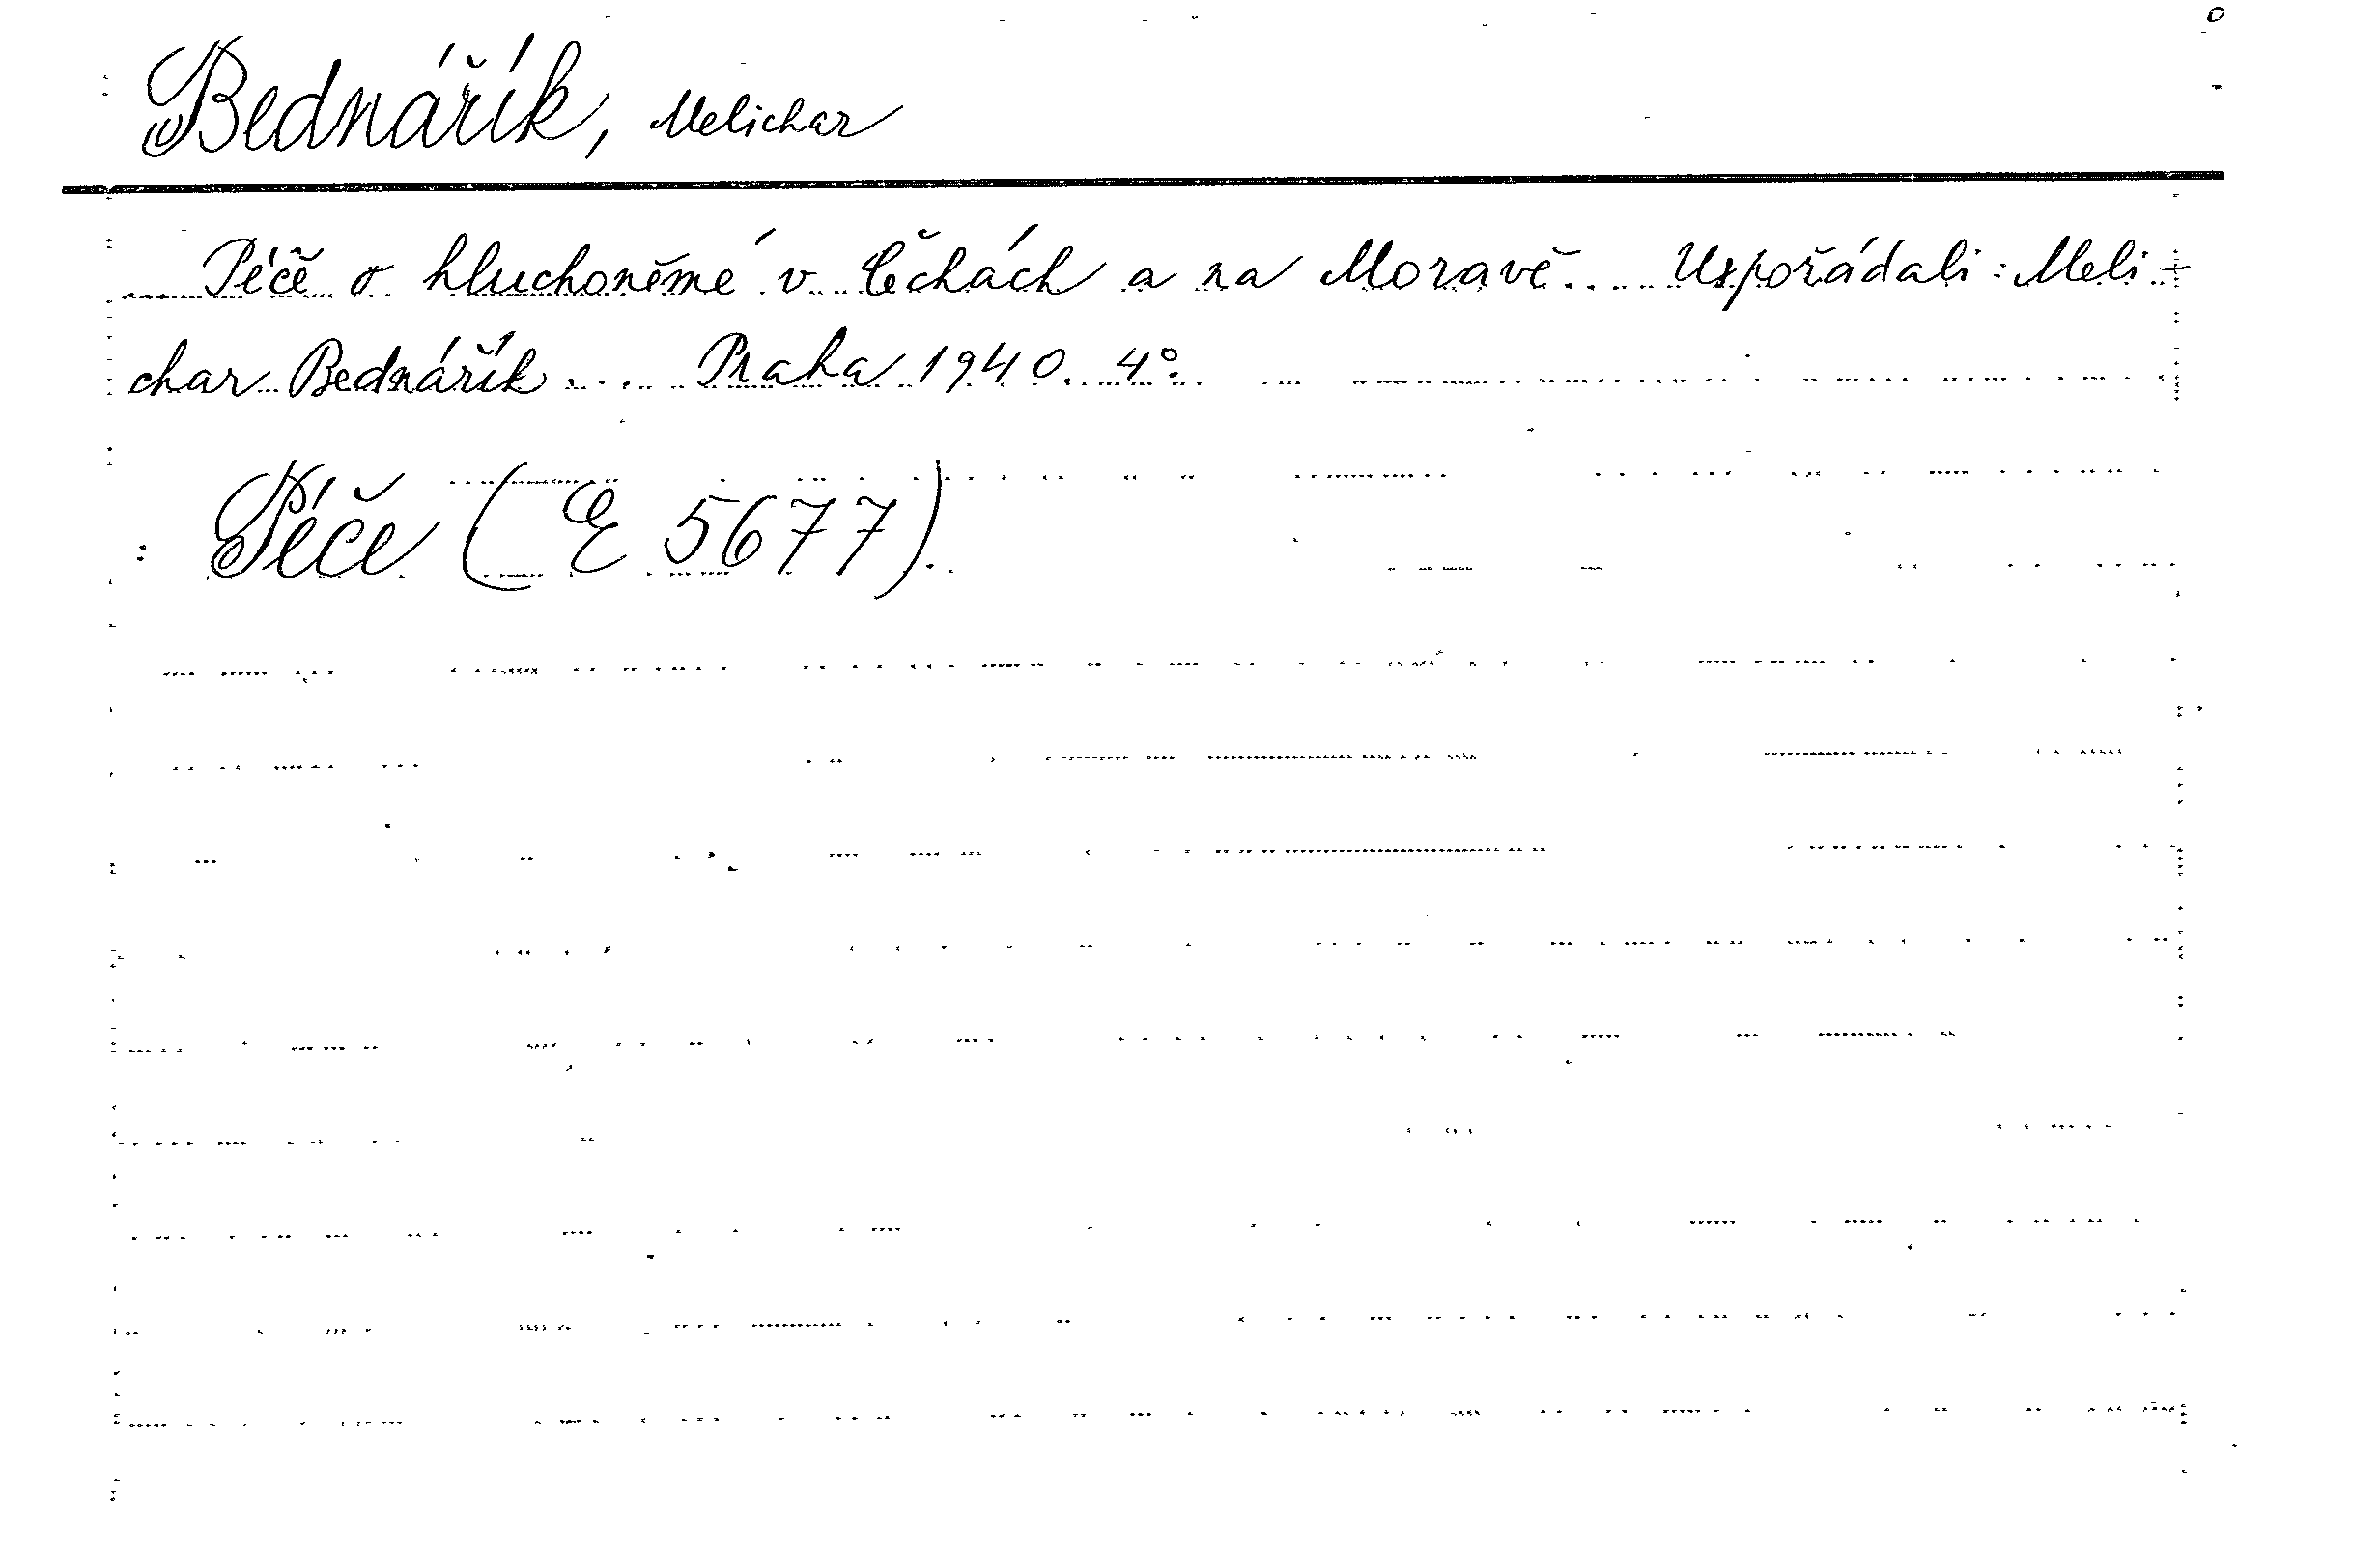 Bednářík, Melichar
Péče o hluchoněmé v Čechách a na Moravě... Uspořádali: Meli-
char Bednářík.... Praha 1940. 4°.
Péče (E 5677).